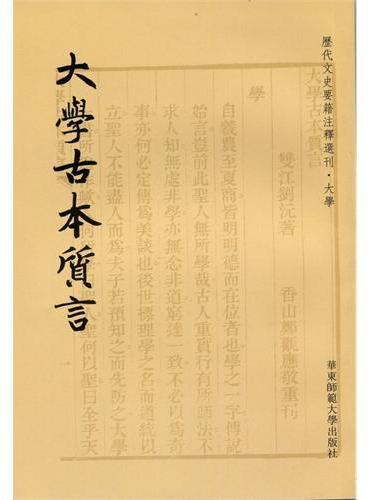 歷代文史要籍注釋選刊·大學
華東師範大學出版社
大學古本質言
大學古本質言
雙江劉沅著 香山鄭觀應敬重刊
學
自羲農至夏商皆明明德而在位者也學之一字傅說
始言豈前此聖人無所學哉古人重實行有所師法不
求人知無處非學亦無念非道窮達一致不必以爲奇
事亦何必定傳爲美談也後世標理學之名而道統以
立聖人不能盡人而爲夫子若預知之而先防之大學
聖何以聖曰全乎天
一